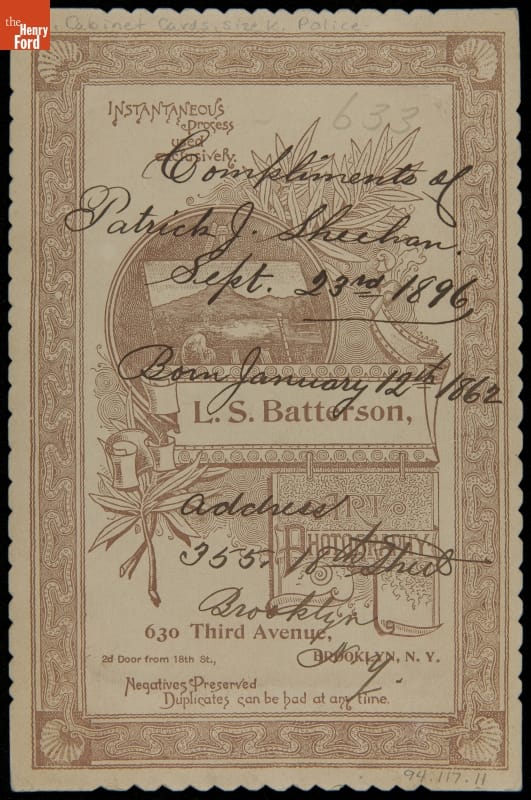 the
Henry
Ford
Cabinet Cards, size k. Police
633
INSTANTANEOUS
Process
used
exclusively.
Compliments of
Patrick J. Sheehan.
Sept. 23rd 1896
Born January 12th 1862
L. S. Batterson,
Address
ART
PHOTOGRAPHY
355. 18th Street
Brooklyn
N.Y.
630 Third Avenue,
2d Door from 18th St., BROOKLYN, N. Y.
Negatives Preserved
Duplicates can be had at any time.
94.117.11